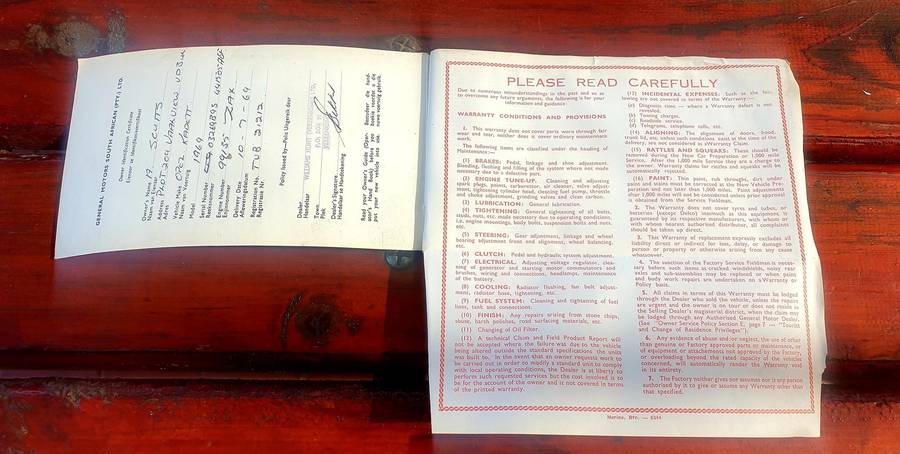 GENERAL MOTORS SOUTH AFRICAN (PTY.) LTD.
Owner Identification Certificate
Owner's Name
Naam van Eienaar
Address
Adres
Vehicle Make OPEL KADETT
Naam van Voertuig
Model 1969
Serial Number
Reeksnommer
Engine Number
Delivery Date 10-7-69
Afleweringsdatum
Registration No. TUB 2121
Registrasie Nr.
Policy Issued by—Polis Uitgereik deur
Dealer
Handelaar
Town
Plek
Dealer's Signature
Handelaar se Handtekening
Read your Owner's Guide (Operator's Hand Book) before you put your new car into use.
PLEASE READ CAREFULLY
Due to numerous misunderstandings in the past and so as
to overcome any future arguments, the following is for your
information and guidance:
WARRANTY CONDITIONS AND PROVISIONS
1. This warranty does not cover parts worn through fair
wear and tear, neither does it cover ordinary maintenance
work.
The following items are classified under the heading of
Maintenance:—
(1) BRAKES: Pedal, linkage and shoe adjustment.
Bleeding, flushing and filling of the system where not made
necessary due to a defective part.
(2) ENGINE TUNE-UP. Cleaning and adjusting
spark plugs, points, carburettor, air cleaner, valve adjust-
ment, tightening cylinder head, cleaning fuel pump, throttle
and choke adjustment, grinding valves and clean carbon.
(3) LUBRICATION: General lubrication.
(4) TIGHTENING: General tightening of all bolts,
studs, nuts, etc. made necessary due to operating conditions,
i.e. engine mountings, body bolts, suspension bolts and nuts,
etc.
(5) STEERING: Gear adjustment, linkage and wheel
bearing adjustment front end alignment, wheel balancing,
etc.
(6) CLUTCH: Pedal and hydraulic system adjustment.
(7) ELECTRICAL. Adjusting voltage regulator, clea-
ning of generator and starting motor commutators and
brushes, wiring and connections, headlamps, maintenance
of the battery.
(8) COOLING: Radiator flushing, fan belt adjust-
ment, radiator hose, tightening, etc.
(9) FUEL SYSTEM: Cleaning and tightening of fuel
lines, tank and connections.
(10) FINISH: Any repairs arising from stone chips,
abuse, harsh polishes, road surfacing materials, etc.
(11) Changing of Oil Filter.
(12) A technical Claim and Field Product Report will
not be accepted where the failure was due to the vehicle
being altered outside the standard specifications the unit
was built to. In the event that an owner requests work to
be carried out in order to modify a standard unit to comply
with local operating conditions, the Dealer is at liberty to
perform such requested services but the cost involved is to
be for the account of the owner and is not covered in terms
of the printed warranty.
(13) INCIDENTAL EXPENSES: Such as the fol-
lowing are not covered in terms of the Warranty—
(a) Diagnosis time — where a Warranty defect is not
revealed.
(b) Towing charges.
(c) Roadside service.
(d) Telegrams, telephone calls, etc.
(14) ALIGNING: The alignment of doors, hood,
trunk lid, etc. unless such conditions exist at the time of
delivery, are not considered as a Warranty Claim.
(15) RATTLES AND SQUEAKS: These should be
removed during the New Car Preparation or 1,000 mile
Service. After the 1,000 mile Service they are a charge to
the owner. Warranty claims for rattles and squeaks will be
automatically rejected.
(16) PAINT: Thin paint, rub throughs, dirt under
paint and stains must be corrected at the New Vehicle Pre-
paration and not later than 1,000 miles. Paint adjustments
after 1,000 miles will not be considered unless prior approval
is obtained from the Service Fieldman.
2. The Warranty does not cover tyres and tubes, or
batteries (except Delco) inasmuch as this equipment is
guaranteed by its respective manufacturers, with whom or
with whose nearest authorised distributor, all complaints
should be taken up direct.
3. This Warranty of replacement expressly excludes all
liability direct or indirect for loss, delay, or damage to
person or property or otherwise arising from any cause
whatsoever.
4. The sanction of the Factory Service Fieldman is neces-
sary before such items as cracked windshields, noisy rear
axles and sub-assemblies may be replaced or when paint
and body work repairs are undertaken on a Warranty or
Policy basis.
5. All claims in terms of this Warranty must be lodged
through the Dealer who sold the vehicle, unless the repairs
are urgent and the owner is on tour or does not reside in
the Selling Dealer's magisterial district, when the claim may
be lodged through any Authorised General Motor Dealer.
(See "Owner Service Policy Section E, page 7 — "Tourist
and Change of Residence Privileges").
6. Any evidence of abuse and/or neglect, the use of other
than genuine or Factory approved parts or maintenance, or
of equipment or attachments not approved by the Factory,
or overloading beyond the rated capacity of the vehicle
concerned, will automatically render the Warranty void
in its entirety.
7. The Factory neither gives nor assumes nor is any person
authorised by it to give or assume any Warranty other than
that specified.